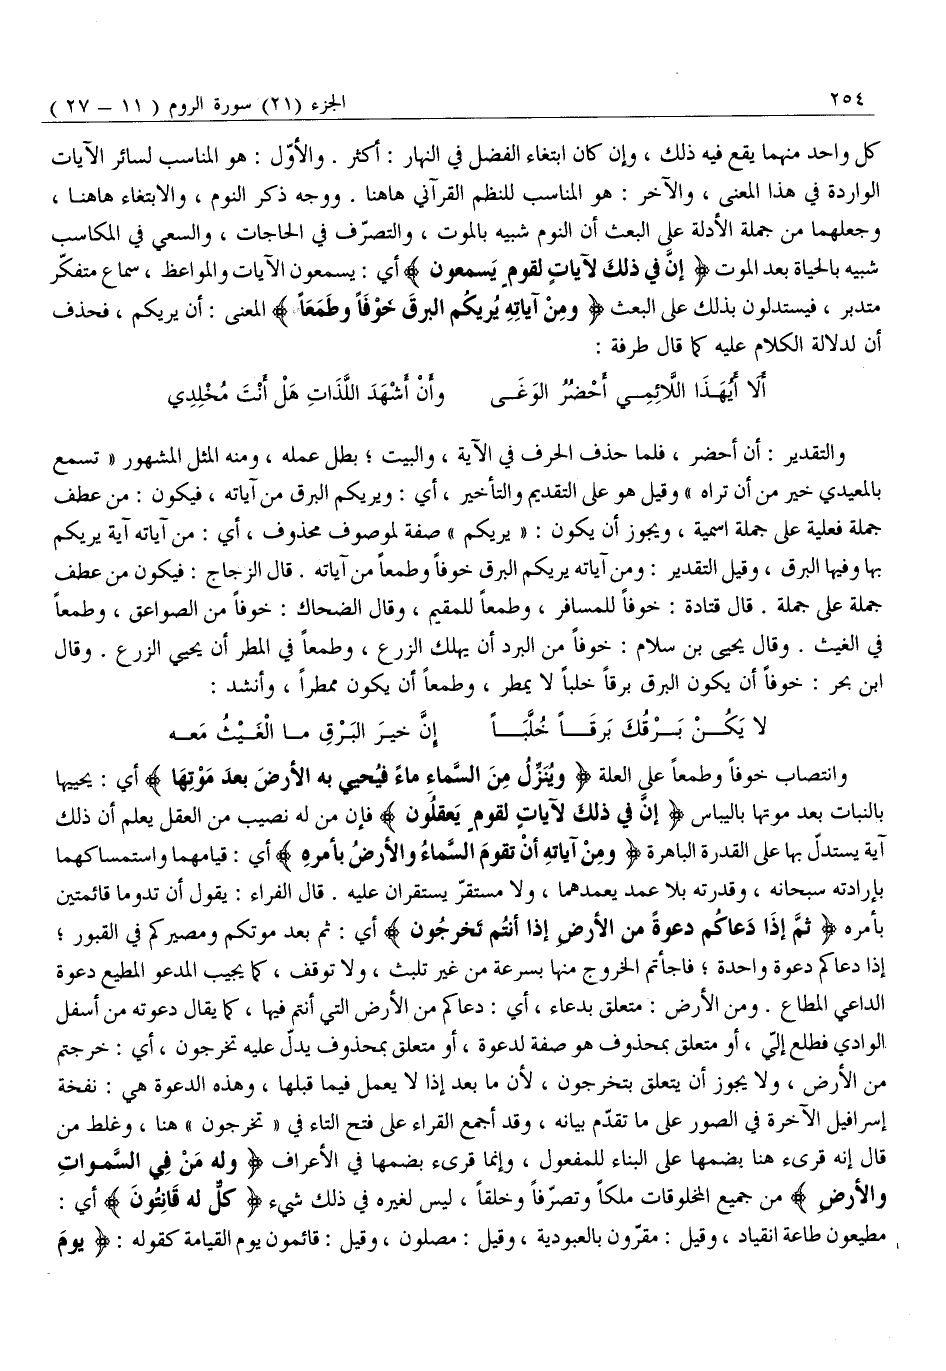 ٢٥٤ الجزء (٢١) سورة الروم ( ١١ – ٢٧ )
كل واحد منهما يقع فيه ذلك ، وإن كان ابتغاء الفضل في النهار : أكثر . والأوّل : هو المناسب لسائر الآيات
الواردة في هذا المعنى ، والآخر : هو المناسب للنظم القرآني هاهنا . ووجه ذكر النوم ، والابتغاء هاهنا ،
وجعلهما من جملة الأدلة على البعث أن النوم شبيه بالموت ، والتصرّف في الحاجات ، والسعي في المكاسب
شبيه بالحياة بعد الموت ﴿ إنَّ في ذلك لآياتٍ لقومٍ يَسمعون ﴾ أي : يسمعون الآيات والمواعظ ، سماع متفكّر
متدبر ، فيستدلون بذلك على البعث ﴿ ومِنْ آياتِهِ يُريكُم البرقَ خَوْفاً وطَمَعَاً ﴾ المعنى : أن يريكم ، فحذف
أن لدلالة الكلام عليه كما قال طرفة :
أَلَا أَيُّهَذَا اللَّائِمِي أَحْضُرُ الوَغَى وأَنْ أَشْهَدَ اللَّذَاتِ هَلْ أَنْتَ مُخْلِدِي
والتقدير : أن أحضر ، فلما حذف الحرف في الآية ، والبيت ؛ بطل عمله ، ومنه المثل المشهور « تسمع
بالمعيدي خير من أن تراه » وقيل هو على التقديم والتأخير ، أي : ويريكم البرق من آياته ، فيكون : من عطف
جملة فعلية على جملة اسمية ، ويجوز أن يكون : « يريكم » صفة لموصوف محذوف ، أي : من آياته آية يريكم
بها وفيها البرق ، وقيل التقدير : ومن آياته يريكم البرق خوفاً وطمعاً من آياته . قال الزجاج : فيكون من عطف
جملة على جملة . قال قتادة : خوفاً للمسافر ، وطمعاً للمقيم ، وقال الضحاك : خوفاً من الصواعق ، وطمعاً
في الغيث . وقال يحيى بن سلام : خوفاً من البرد أن يهلك الزرع ، وطمعاً في المطر أن يحيي الزرع . وقال
ابن بحر : خوفاً أن يكون البرق برقاً خلباً لا يمطر ، وطمعاً أن يكون ممطراً ، وأنشد :
لا يَكُنْ بَرْقُكَ بَرقَاً خُلَّبَاً إنَّ خيرَ البَرْقِ ما الْغَيْثُ مَعَه
وانتصاب خوفاً وطمعاً على العلة ﴿ ويُنَزِّلُ مِنَ السَّماءِ ماءً فيُحيي به الأرضَ بعدَ مَوْتِهَا ﴾ أي : يحييها
بالنبات بعد موتها باليباس ﴿ إنَّ في ذلك لآياتٍ لقومٍ يَعقلُون ﴾ فإن من له نصيب من العقل يعلم أن ذلك
آية يستدلّ بها على القدرة الباهرة ﴿ ومِنْ آياتِهِ أنْ تقومَ السَّماءُ والأرضُ بأمرِهِ ﴾ أي : قيامهما واستمساكهما
بإرادته سبحانه ، وقدرته بلا عمد يعمدهما ، ولا مستقرّ يستقران عليه . قال الفراء : يقول أن تدوما قائمتين
بأمره ﴿ ثمَّ إذَا دَعاكُم دعوةً من الأرضِ إذا أنتُم تَخرجُون ﴾ أي : ثم بعد موتكم ومصيركم في القبور ؛
إذا دعاكم دعوة واحدة ؛ فاجأتم الخروج منها بسرعة من غير تلبث ، ولا توقف ، كما يجيب المدعو المطيع دعوة
الداعي المطاع . ومن الأرض : متعلق بدعاء ، أي : دعاكم من الأرض التي أنتم فيها ، كما يقال دعوته من أسفل
الوادي فطلع إليّ ، أو متعلق بمحذوف هو صفة لدعوة ، أو متعلق بمحذوف يدلّ عليه تخرجون ، أي : خرجتم
من الأرض ، ولا يجوز أن يتعلق بتخرجون ، لأن ما بعد إذا لا يعمل فيما قبلها ، وهذه الدعوة هي : نفخة
إسرافيل الآخرة في الصور على ما تقدّم بيانه ، وقد أجمع القراء على فتح التاء في « تخرجون » هنا ، وغلط من
قال إنه قرىء هنا بضمها على البناء للمفعول ، وإنما قرىء بضمها في الأعراف ﴿ وله مَنْ فِي السَّمواتِ
والأرضِ ﴾ من جميع المخلوقات ملكاً وتصرّفاً وخلقاً ، ليس لغيره في ذلك شيء ﴿ كلٌّ له قَانِتُونَ ﴾ أي :
مطيعون طاعة انقياد ، وقيل : مقرّون بالعبودية ، وقيل : مصلون ، وقيل : قائمون يوم القيامة كقوله : ﴿ يومَ